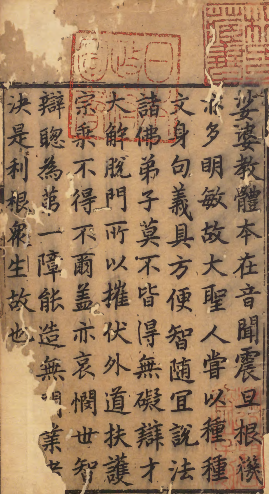 娑婆教體本在音聞震旦根機
多明敏故大聖人嘗以種種
文身句義具方便智隨宜說法
諸佛弟子莫不皆得無礙辯才
大解脫門所以摧伏外道扶護
宗乘不得不爾蓋亦哀憫世智
辯聰為第一障能造無業
決是利根衆生故也